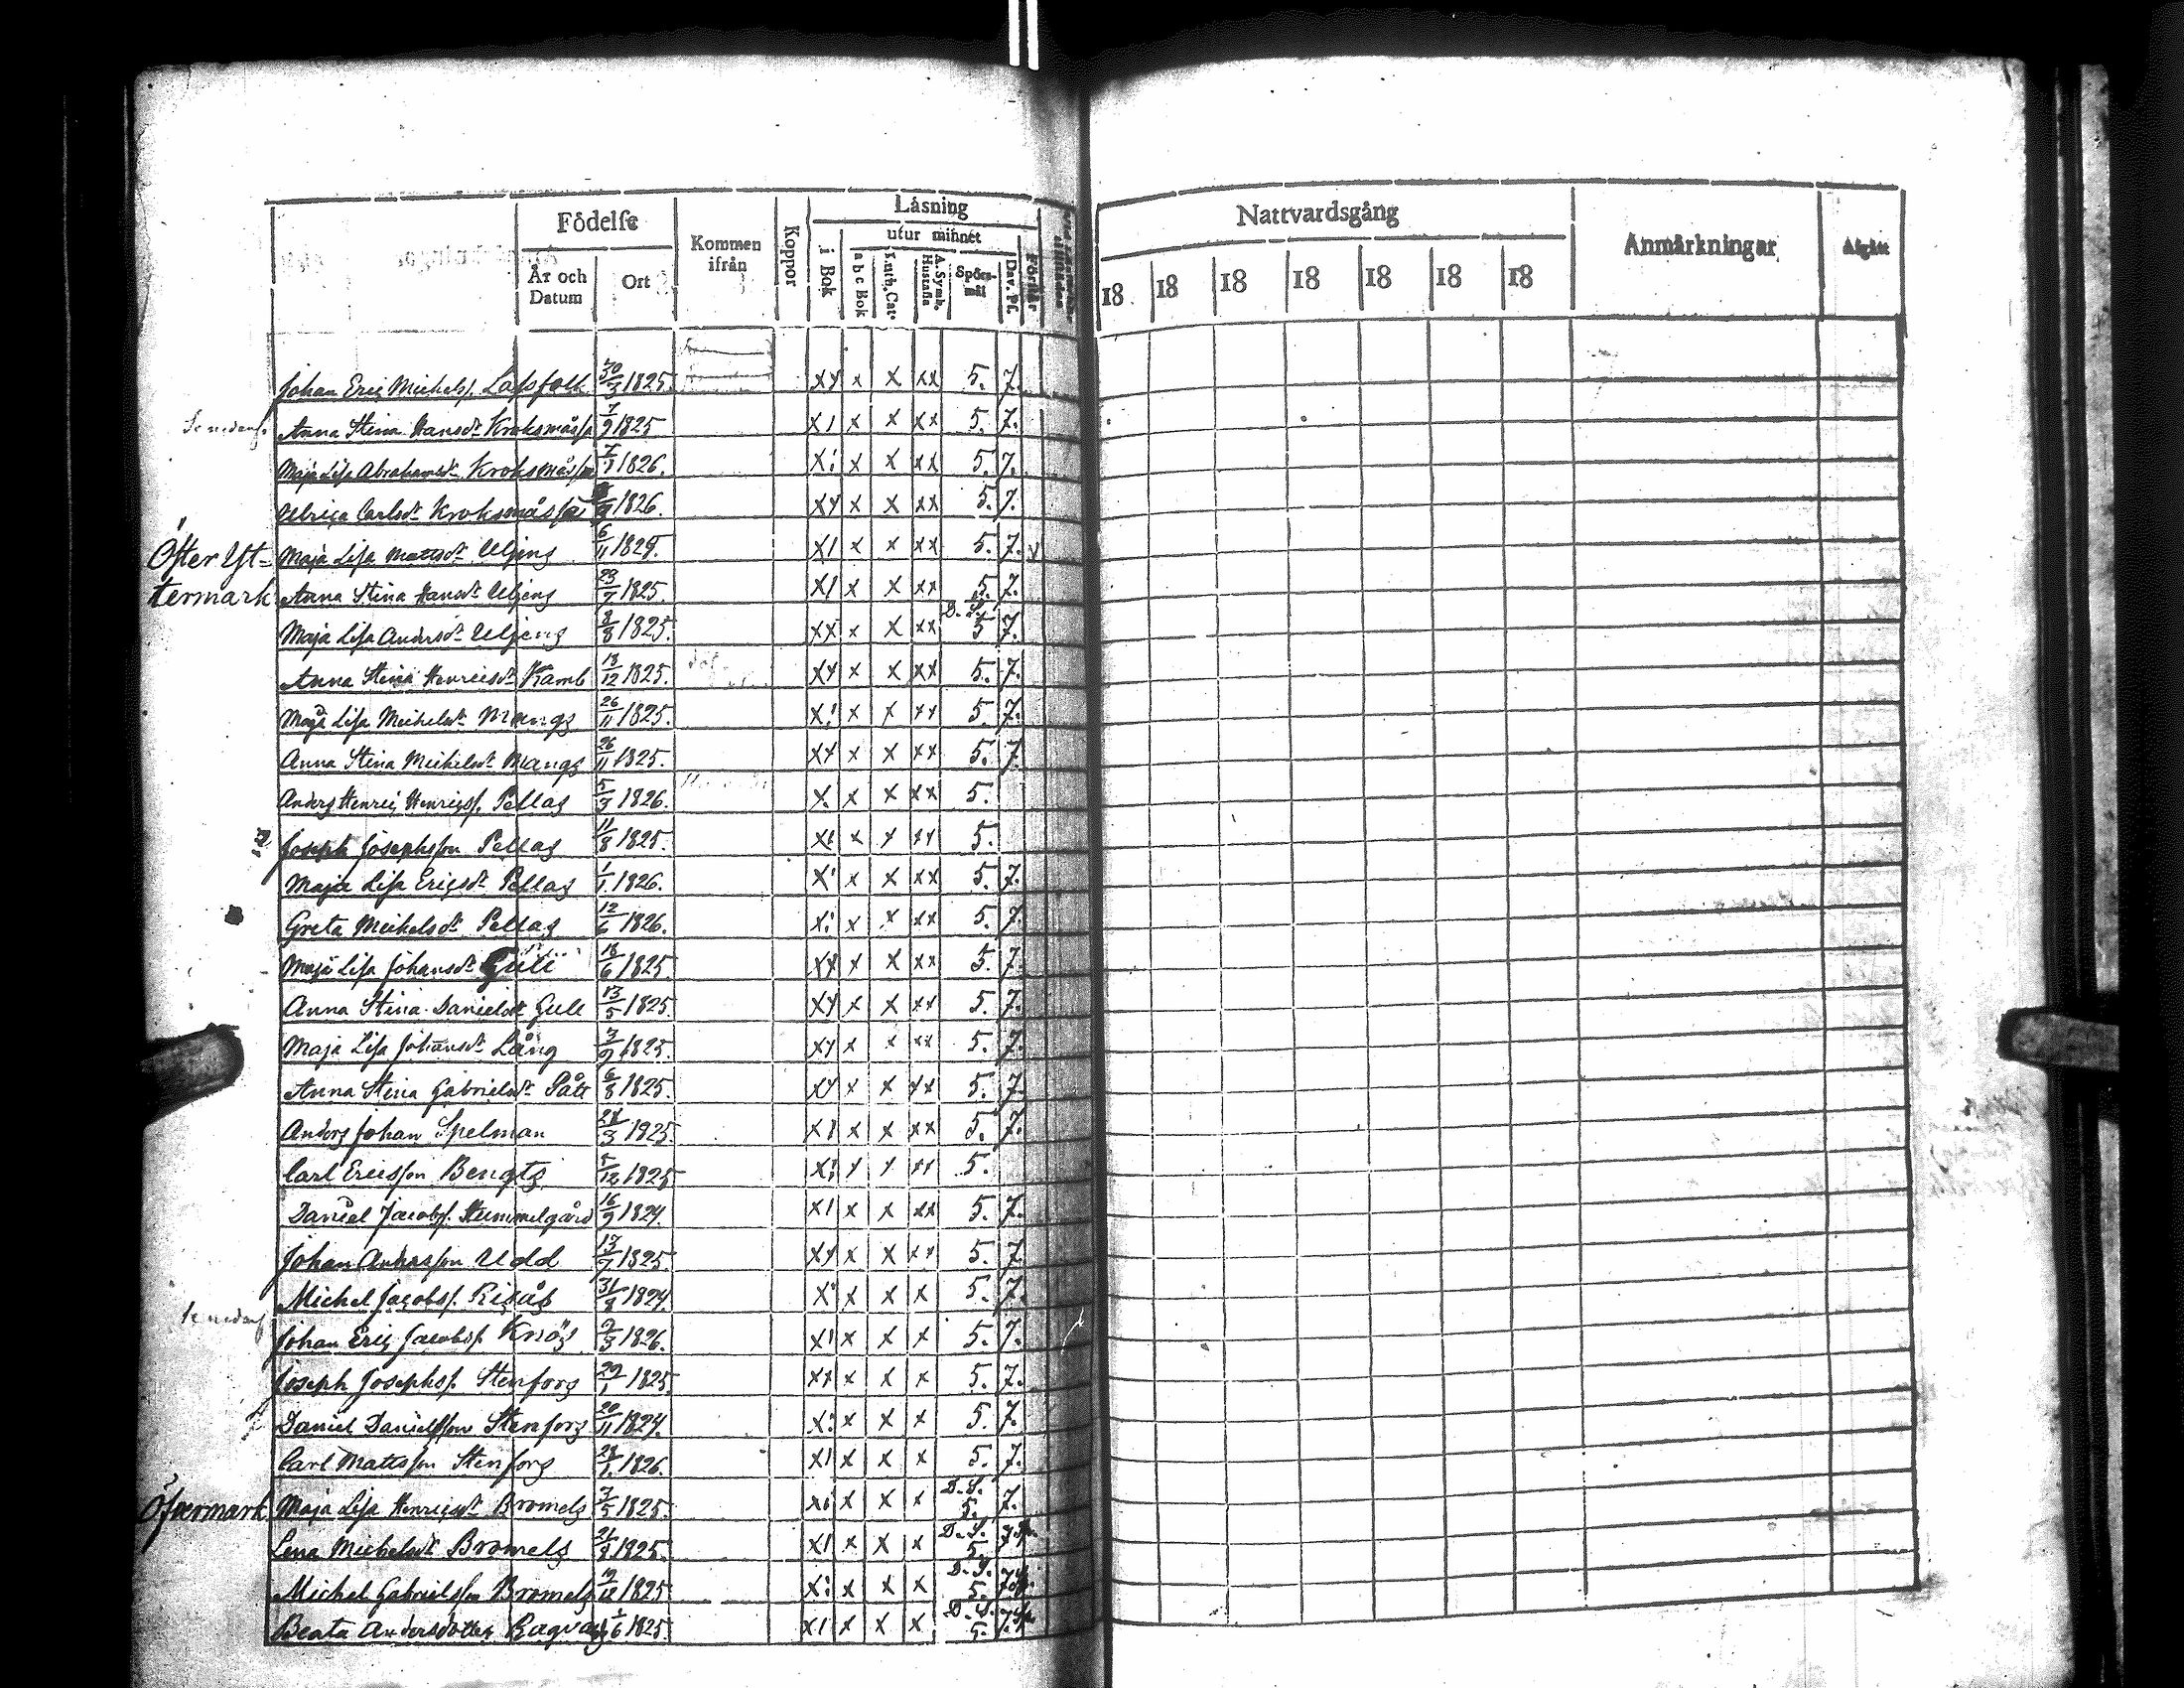 Födelse
Kommen ifrån
Koppor
Läsning
utur minnet
År och Datum
Ort
i Bok
a b c Bok
Luth. Cat.
A. Symb. Hustafla
Spörs-mål
Dav. Ps.
Förhår
Nattvardsgång
Anmärkningar
Afgått
18 18 18 18 18 18 18
Johan Eric Michelss. Lassfolk 30/3 1825. xx x x xx 5. 7.
Anna Stina Hansdr Kroksmässa 7/9 1825 x x x xx 5. 7.
Maja Lisa Abrahamsdr Kroksmässa 1826. x x x xx 5. 7.
Ulrica Carlsdr Kroksmåssa 1826. xx x x xx 5. 7.
Öfter Yt-
termark
Maja Lisa Mattsdr Uljens 6/11 1825. x x x xx 5. 7. x
Anna Stina Hansdr Uljens 23/7 1825. x x x xx 5. 7.
Maja Lisa Andersdr Uljens 1825. xx x x xx D. S. 5 7.
Anna Stina Henricsdr Kamb 13/12 1825. xx x x xx 5. 7.
Maja Lisa Michelsdr Mangs 26/11 1825. x x x xx 5. 7.
Anna Stina Michelsdr Mangs 26/11 1825. xx x x xx 5. 7
Anders Henric Henricss. Pellas 5/3 1826. x x x xx 5.
Joseph Josephsson Pellas 11/8 1825. x x x xx 5.
Maja Lisa Ericsdr Pellas 1/1 1826. x x x xx 5. 7.
Greta Michelsdr Pellas 12/6 1826. x x x xx 5. 7.
Maja Lisa Johansdr Güli 18/6 1825 xx x x xx 5. 7.
Anna Stina Danielsdr Gule 13/5 1825 xx x x xx 5. 7.
Maja Lisa Johansdr Lång 3/9 1825. xx x x xx 5. 7.
Anna Stina Gabrielsdr Pått 6/8 1825. xx x x xx 5. 7.
Anders Johan Spelman 28/3 1825. x x x xx 5. 7.
Carl Ericsson Bengts 5/12 1825 x x x xx 5.
Daniel Jacobss. Hummelgård 16/9 1824. x x x xx 5. 7.
Johan Andersson Udd 13/7 1825 xx x x xx 5. 7
Michel Jacobss. Risås 31/8 1824. x x x x 5. 7.
Johan Eric Jacobss. Knös 2/3 1826. x x x x 5. 7.
Joseph Josephss. Stenfors 29/1 1825. xx x x x 5. 7.
Daniel Danielsson Stenfors 20/11 1824. x x x x 5. 7.
Carl Mattsson Stenfors 28/1 1826. x x x x 5. 7.
Öfvermark
Maja Lisa Henricsdr Bromels 3/5 1825. x x x x D. S. 5. 7.
Lena Michelsdr Bromels 21/8 1825. x x x x D. S. 5. 7
Michel Gabrielsson Bromels 1825 x x x x D. S. 5. 7
Beata Andersdotter Ragvals 1/6 1825. x x x x D. S. 5. 7.